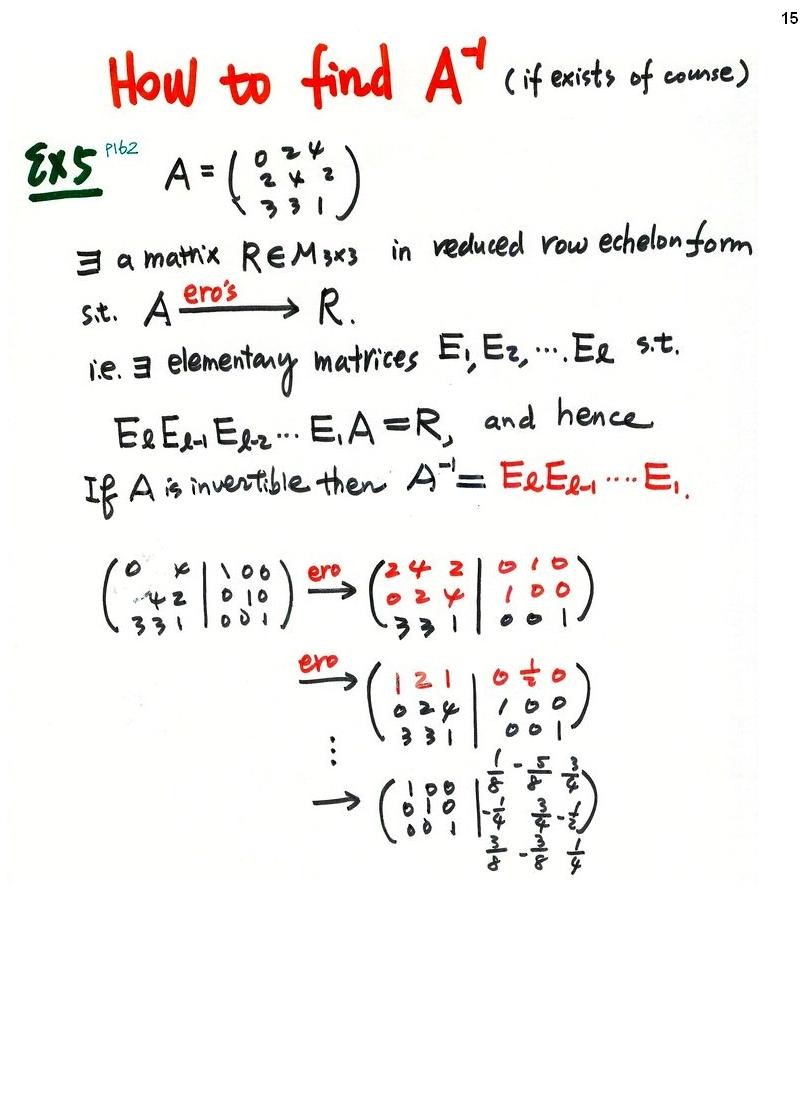 15
How to find A⁻¹ (if exists of course)
EX5 P162
A = ( 0 2 4
2 4 2
3 3 1 )
∃ a matrix R∈M3x3 in reduced row echelon form
s.t. A ero's → R.
i.e. ∃ elementary matrices E₁, E₂, .... Eℓ s.t.
Eℓ Eℓ₋₁ Eℓ₋₂ ... E₁ A = R, and hence
If A is invertible then A⁻¹ = Eℓ Eℓ₋₁ .... E₁.
( 0 4 | 1 0 0 ) ero → ( 2 4 2 | 0 1 0 )
( 4 2 | 0 1 0 ) ( 0 2 4 | 1 0 0 )
( 3 3 1 | 0 0 1 ) ( 3 3 1 | 0 0 1 )
ero → ( 1 2 1 | 0 1/2 0 )
( 0 2 4 | 1 0 0 )
( 3 3 1 | 0 0 1 )
⋮
→ ( 1 0 0 | 1/8 -5/8 3/4 )
( 0 1 0 | -1/4 3/4 -1/2 )
( 0 0 1 | 3/8 -3/8 1/4 )